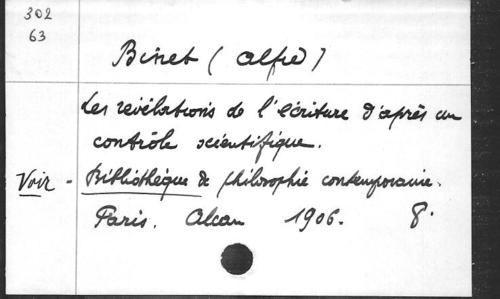 302
63
Binet (Alfred)
Les révélations de l'écriture d'après un
contrôle scientifique.
Voir - Bibliothèque de philosophie contemporaine.
Paris. Alcan 1906. 8°.